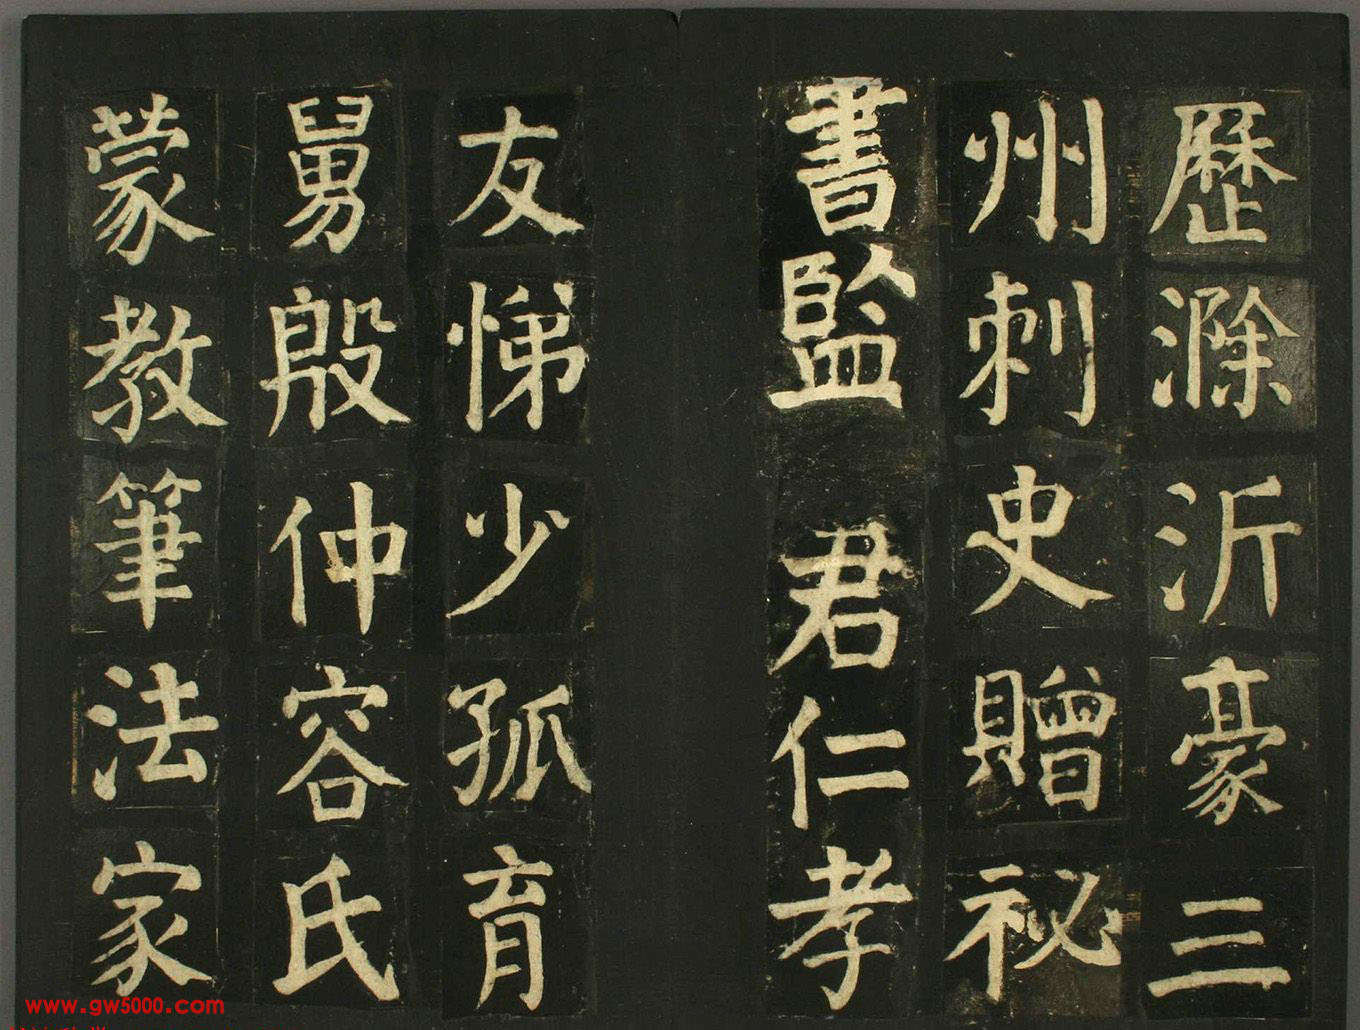 歷滁沂豪三
州刺史贈祕
書監君仁孝
友悌少孤育
舅殷仲容氏
蒙教筆法家
www.gw5000.com